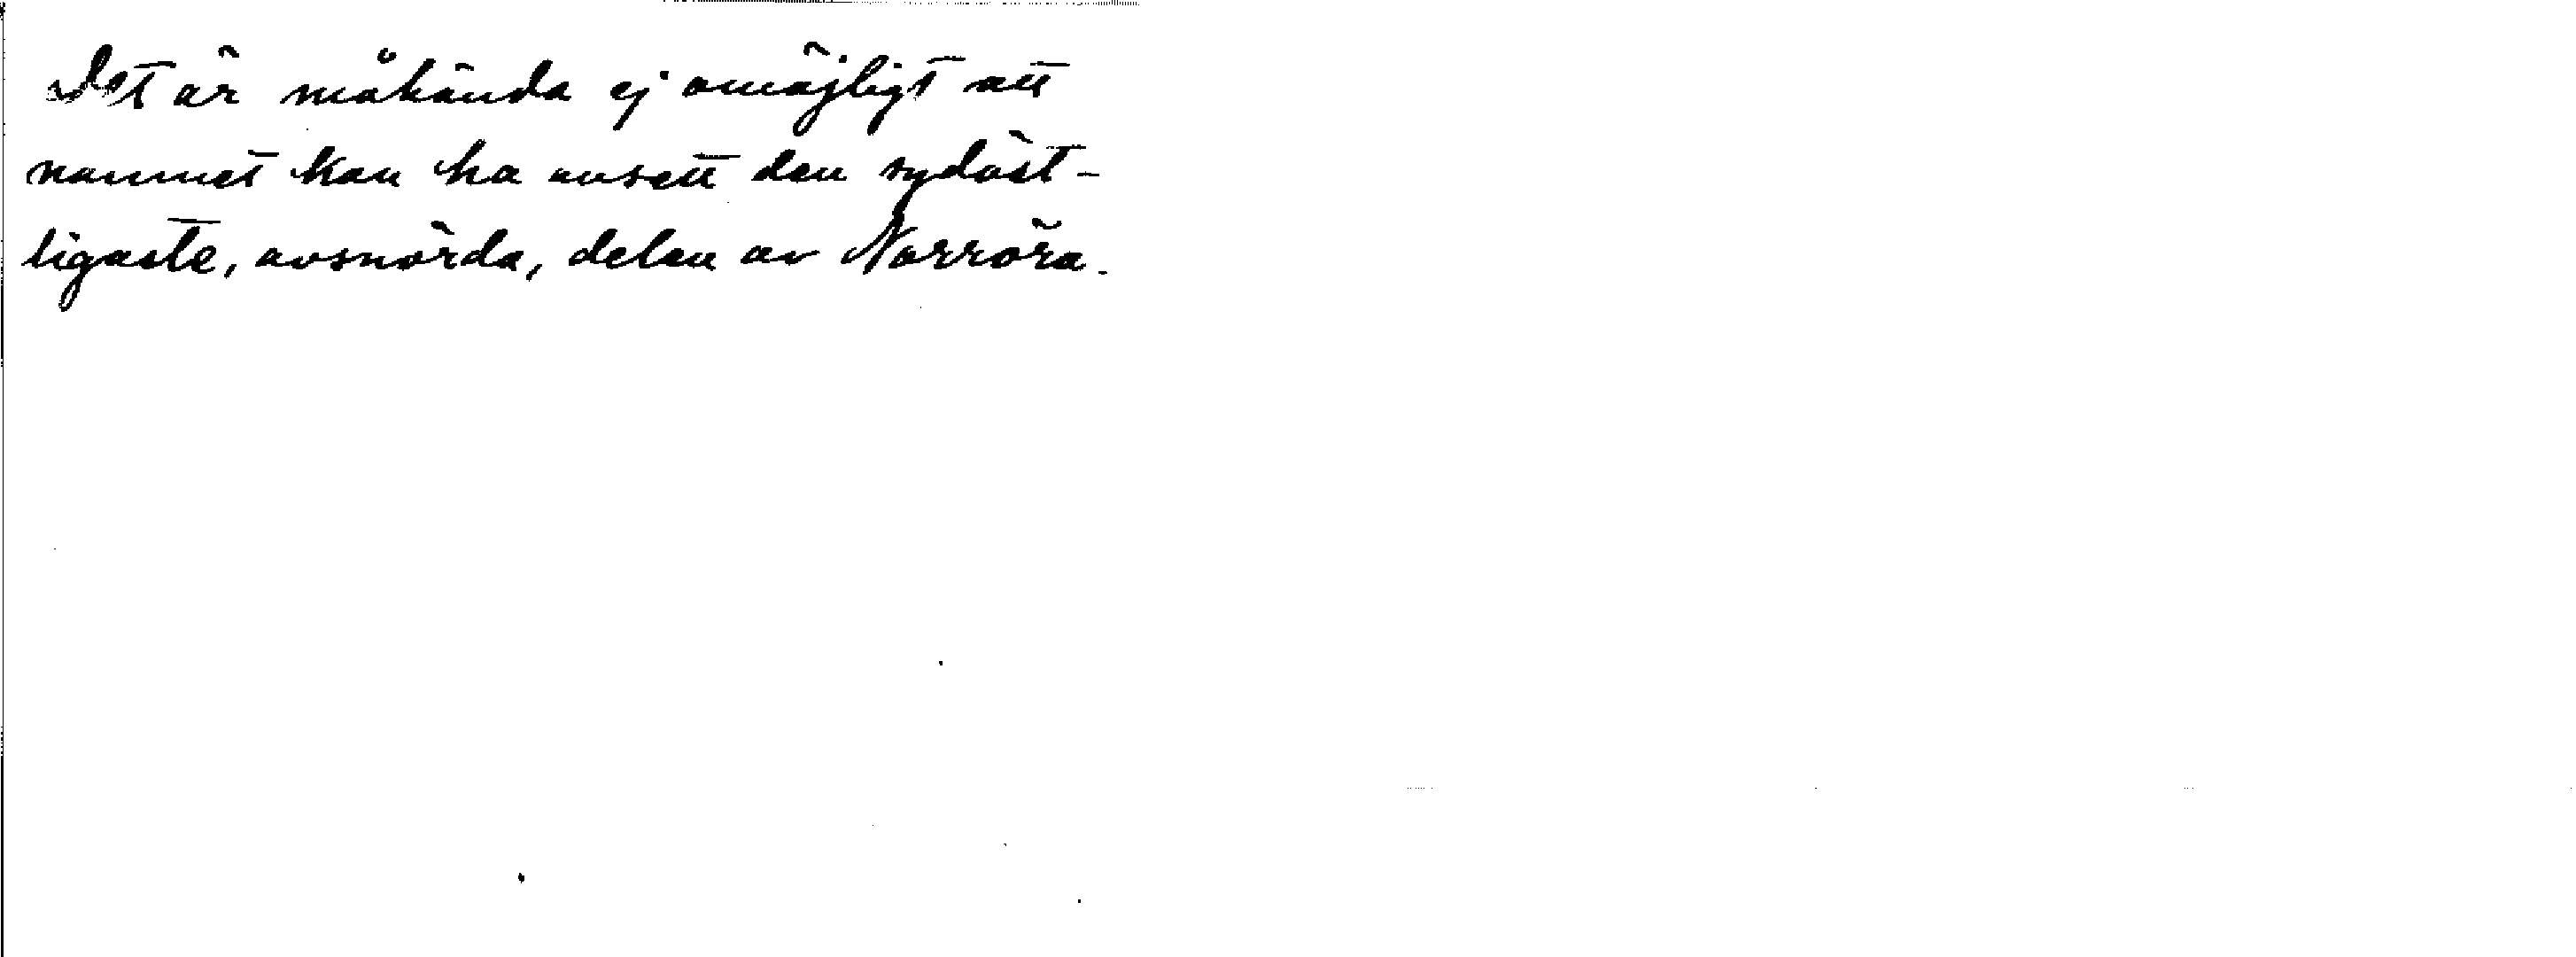 Det är måhända ej omöjligt att
namnet kan ha avsett den sydöst-
ligaste, avsnörda, delen av Norröra.